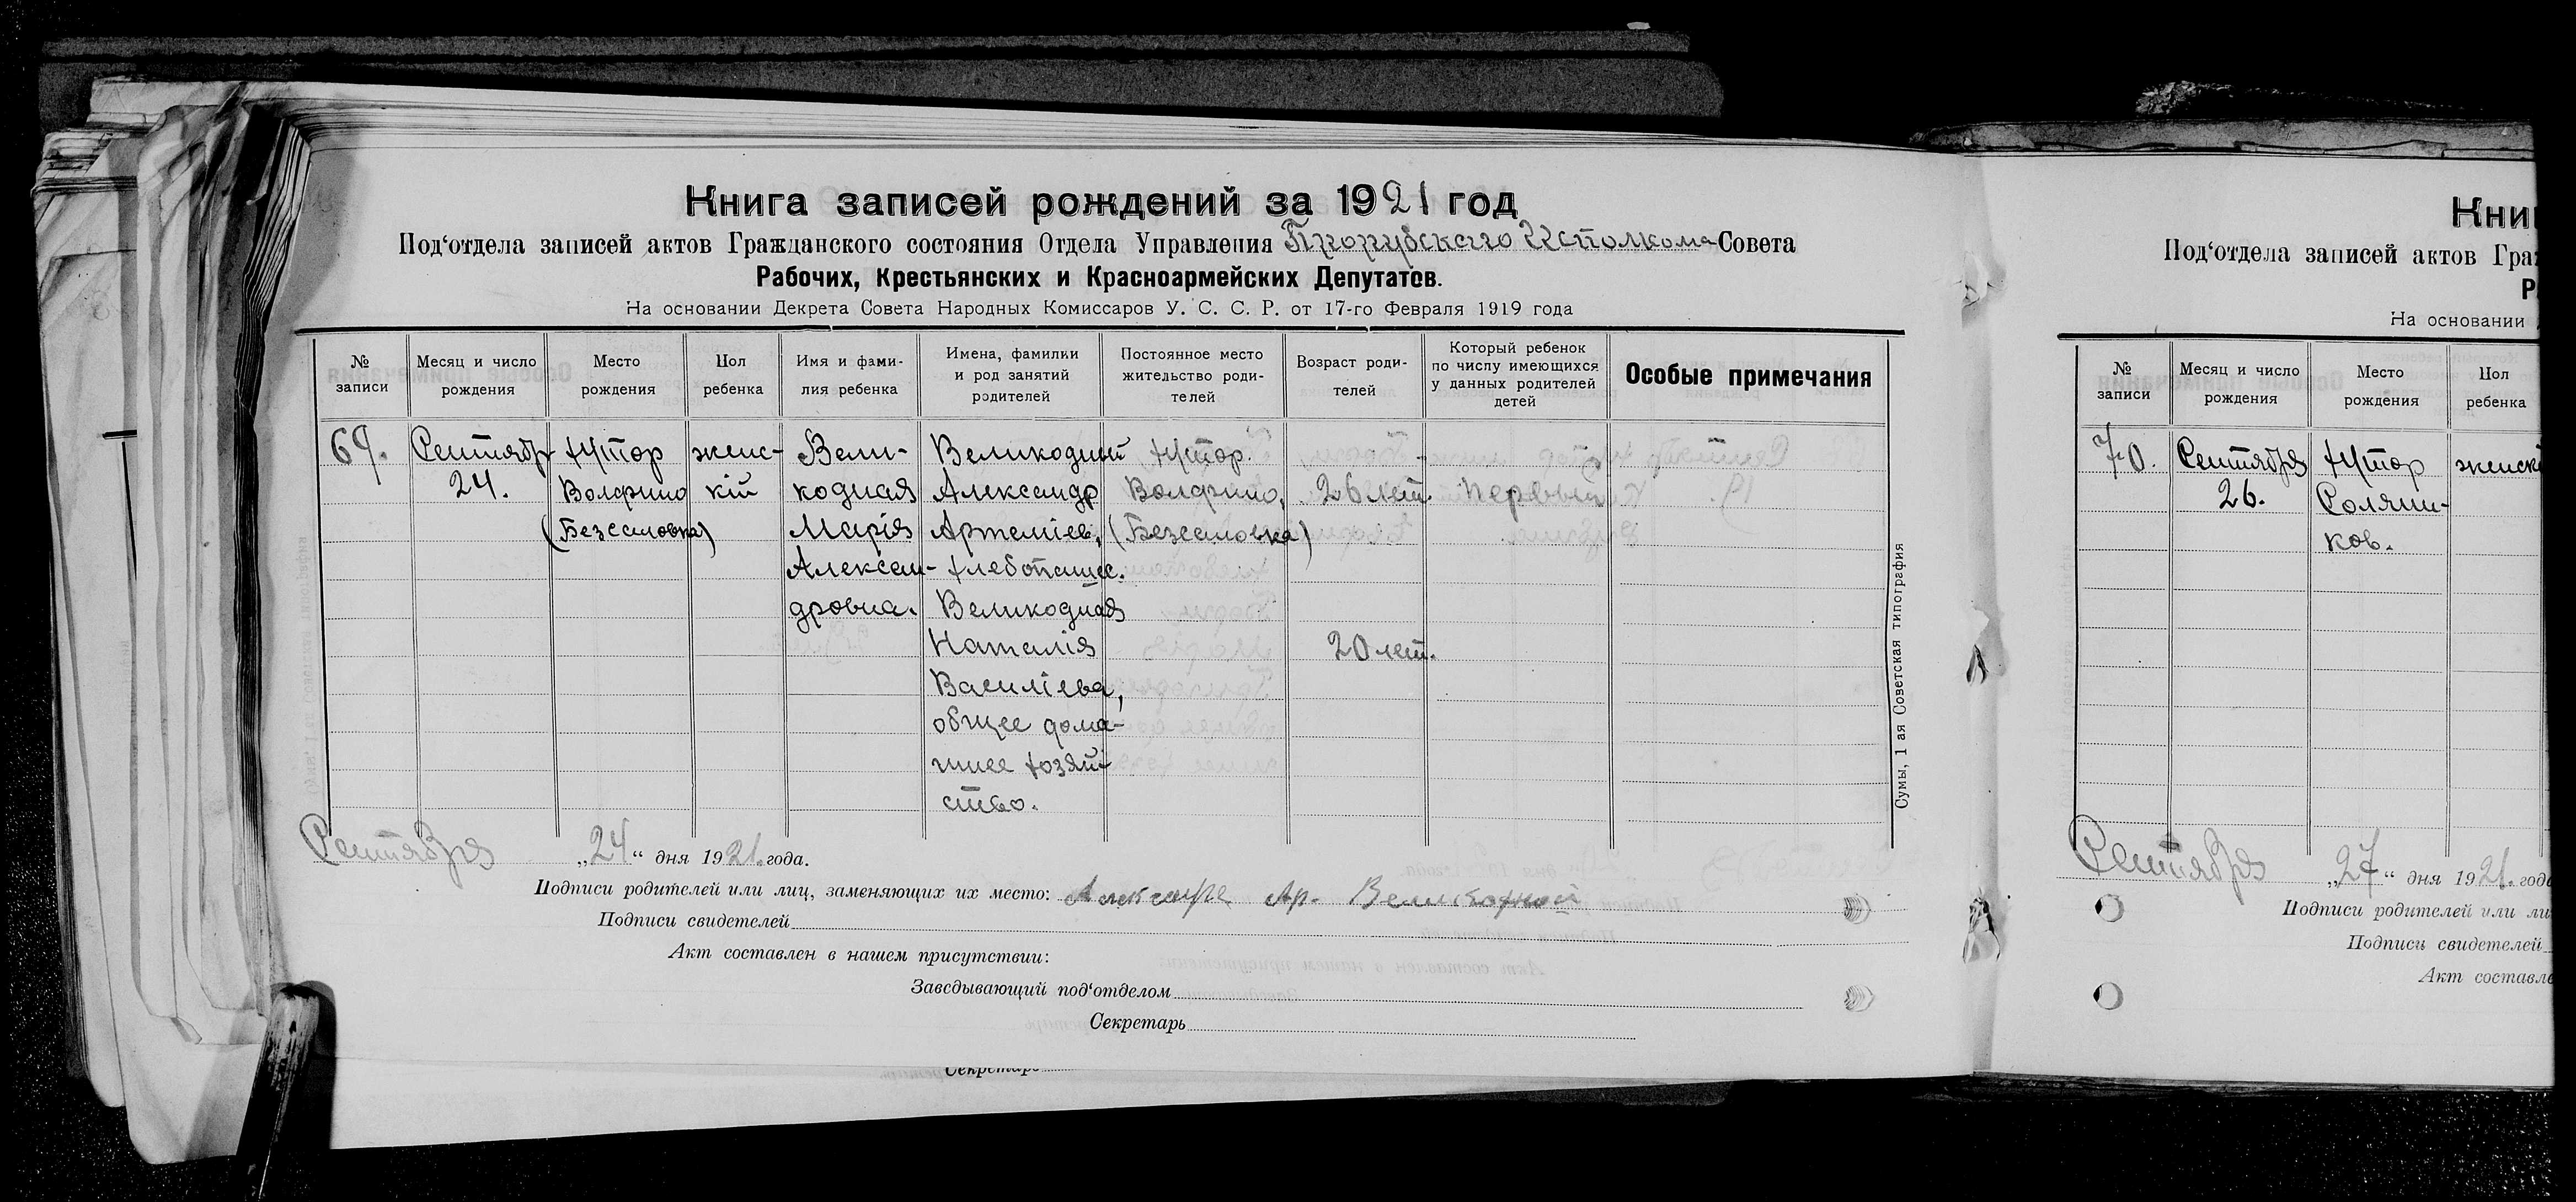 Книга записей рождений за 1921 год
Под‘отдела записей актов Гражданского состояния Отдела Управления Прорубского Исполкома Совета
Рабочих, Крестьянских и Красноармейских Депутатов.
На основании Декрета Совета Народных Комиссаров У. С. С. Р. от 17-го Февраля 1919 года
№ записи
Месяц и число рождения
Место рождения
Пол ребенка
Имя и фами-
лия ребенка
Имена, фамилии
и род занятий
родителей
Постоянное место
жительство роди-
телей
Возраст роди-
телей
Который ребенок
по числу имеющихся
у данных родителей
детей
Особые примечания
69.
Сентябр
24.
Хутор
Волфино
(Безсаловка)
женс-
кій
Вели-
кодная
Марія
Алексан-
дровна.
Великодный
Александр
Артеміев,
хлебопашес.
Великодная
Наталія
Василіева,
общее дома-
шнее хозяй-
ство.
Хутор.
Волфино,
(Безсаловка)
26 лет.
20 лет.
первый
Сентября „24“ дня 1921. года.
Подписи родителей или лиц, заменяющих их место: Ар. Великодной
Подписи свидетелей
Акт составлен в нашем присутствии:
Заведывающий под‘отделом
Секретарь
Секретарь
Сумы, 1 ая Советская типография
Кни
Под‘отдела записей актов Гра
Р
На основании
№ записи
Месяц и число рождения
Место рождения
Пол ребенка
70.
Сентября
26.
Хутор
Соляни-
ков.
женск
Сентября „27“ дня 1921. год
Подписи родителей или ли
Подписи свидетелей
Акт составле